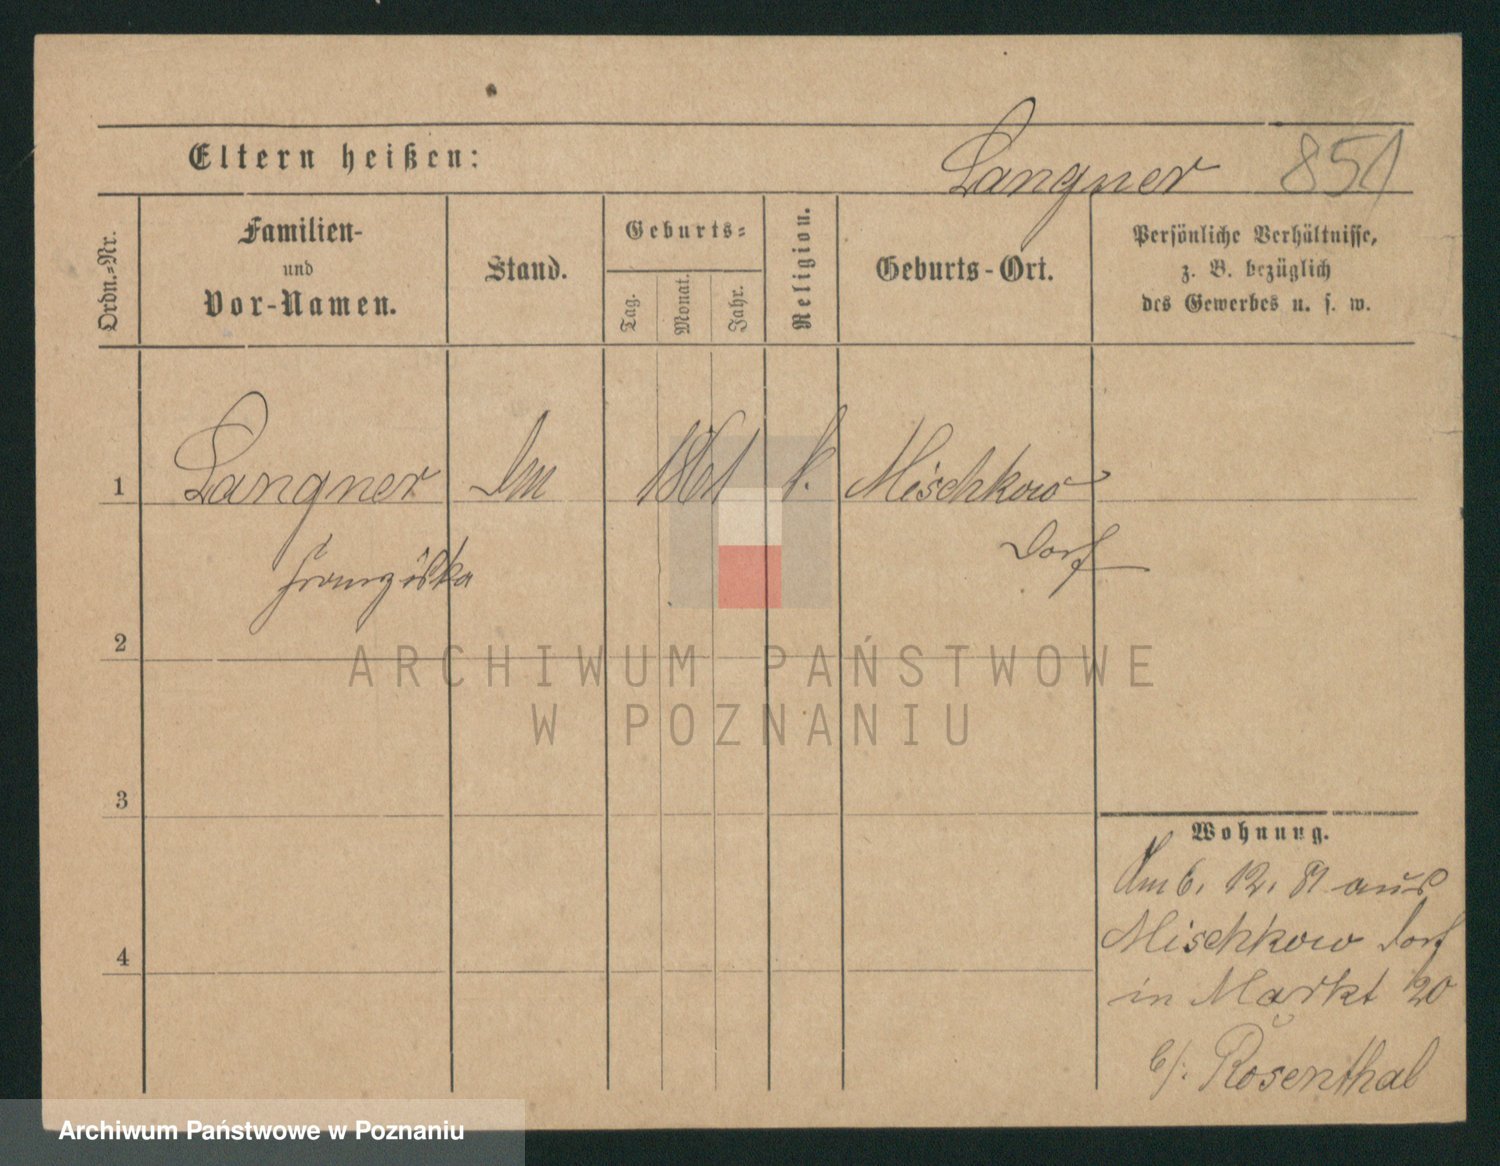 Eltern heißen:
Langner 851
Ordn.-Nr.
Familien-
und
Vor-Namen.
Stand.
Geburts-
Tag.
Monat.
Jahr.
Religion.
Geburts-Ort.
Persönliche Verhältnisse,
z. B. bezüglich
des Gewerbes u. s. w.
1 Langner 1861 k. Mischkow
Franziska Dorf
2
3
4
Wohnung.
Am 6. 12. 81 aus
Mischkow Dorf
in Markt 20
b/. Rosenthal
ARCHIWUM PAŃSTWOWE
W POZNANIU
Archiwum Państwowe w Poznaniu